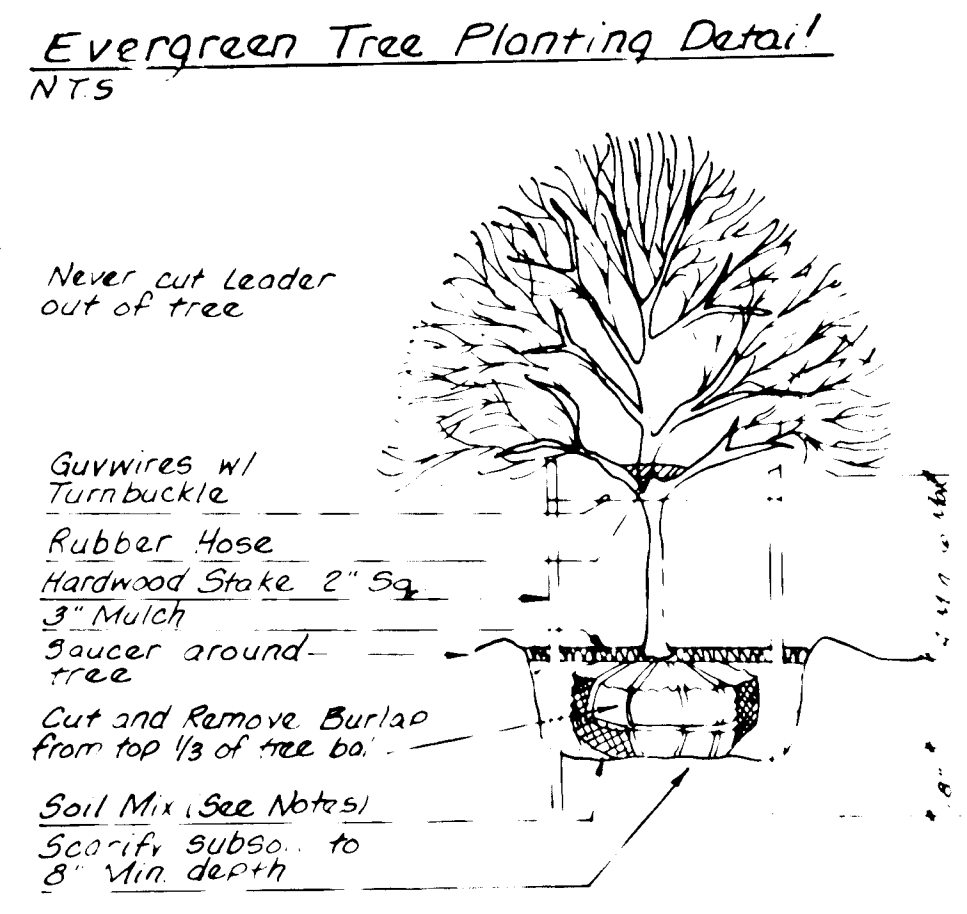 Evergreen Tree Planting Detail
N.T.S
Never cut Leader
out of tree
Guywires w/
Turnbuckle
Rubber Hose
Hardwood Stake 2" Sq.
3" Mulch
Saucer around
tree
Cut and Remove Burlap
from top 1/3 of tree
Soil Mix (See Notes)
Scarify to
8" Min. depth
8"